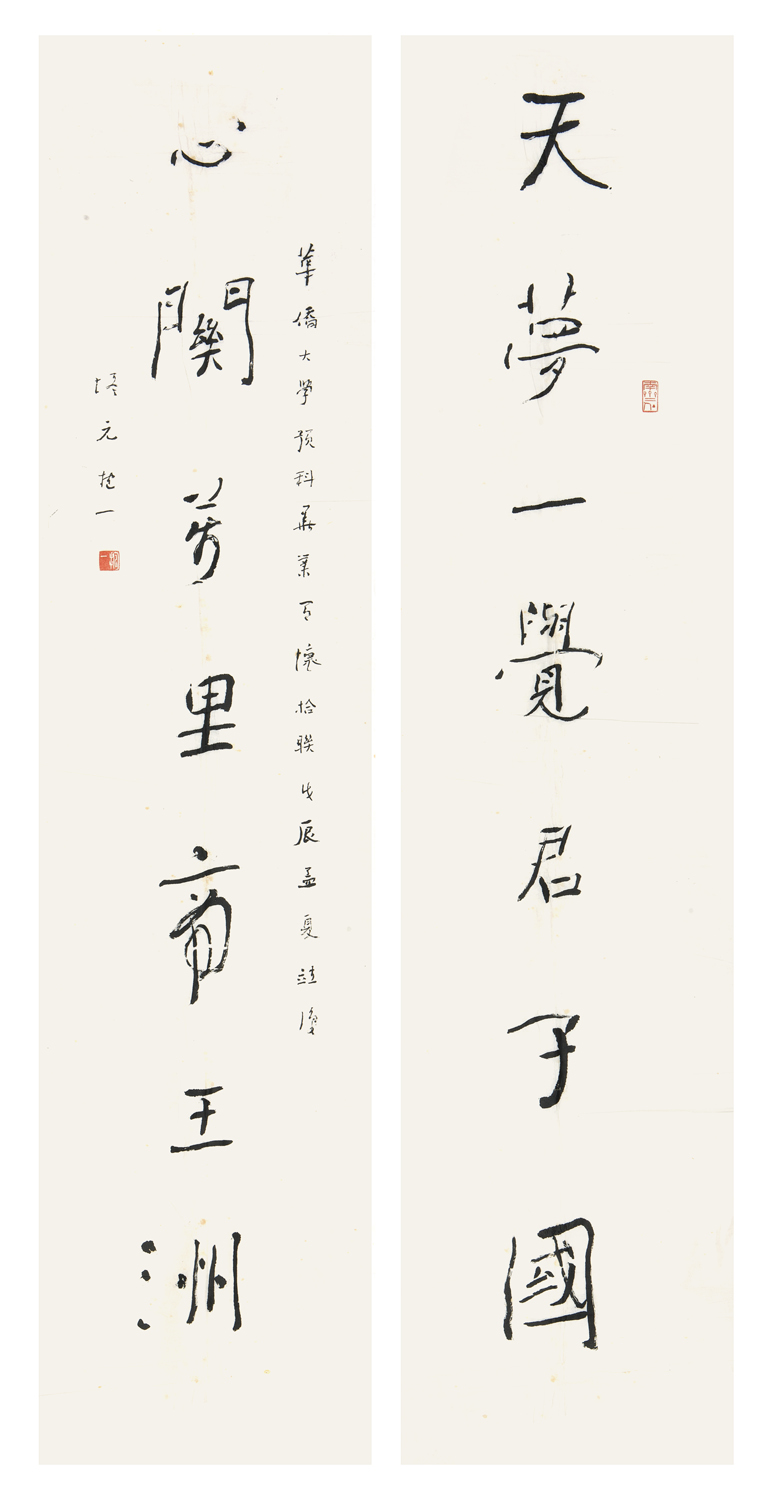 天夢一覺君子國
心關萬里帝王洲
華僑大學預科畢業百懷拾聯戊辰孟夏
元
一